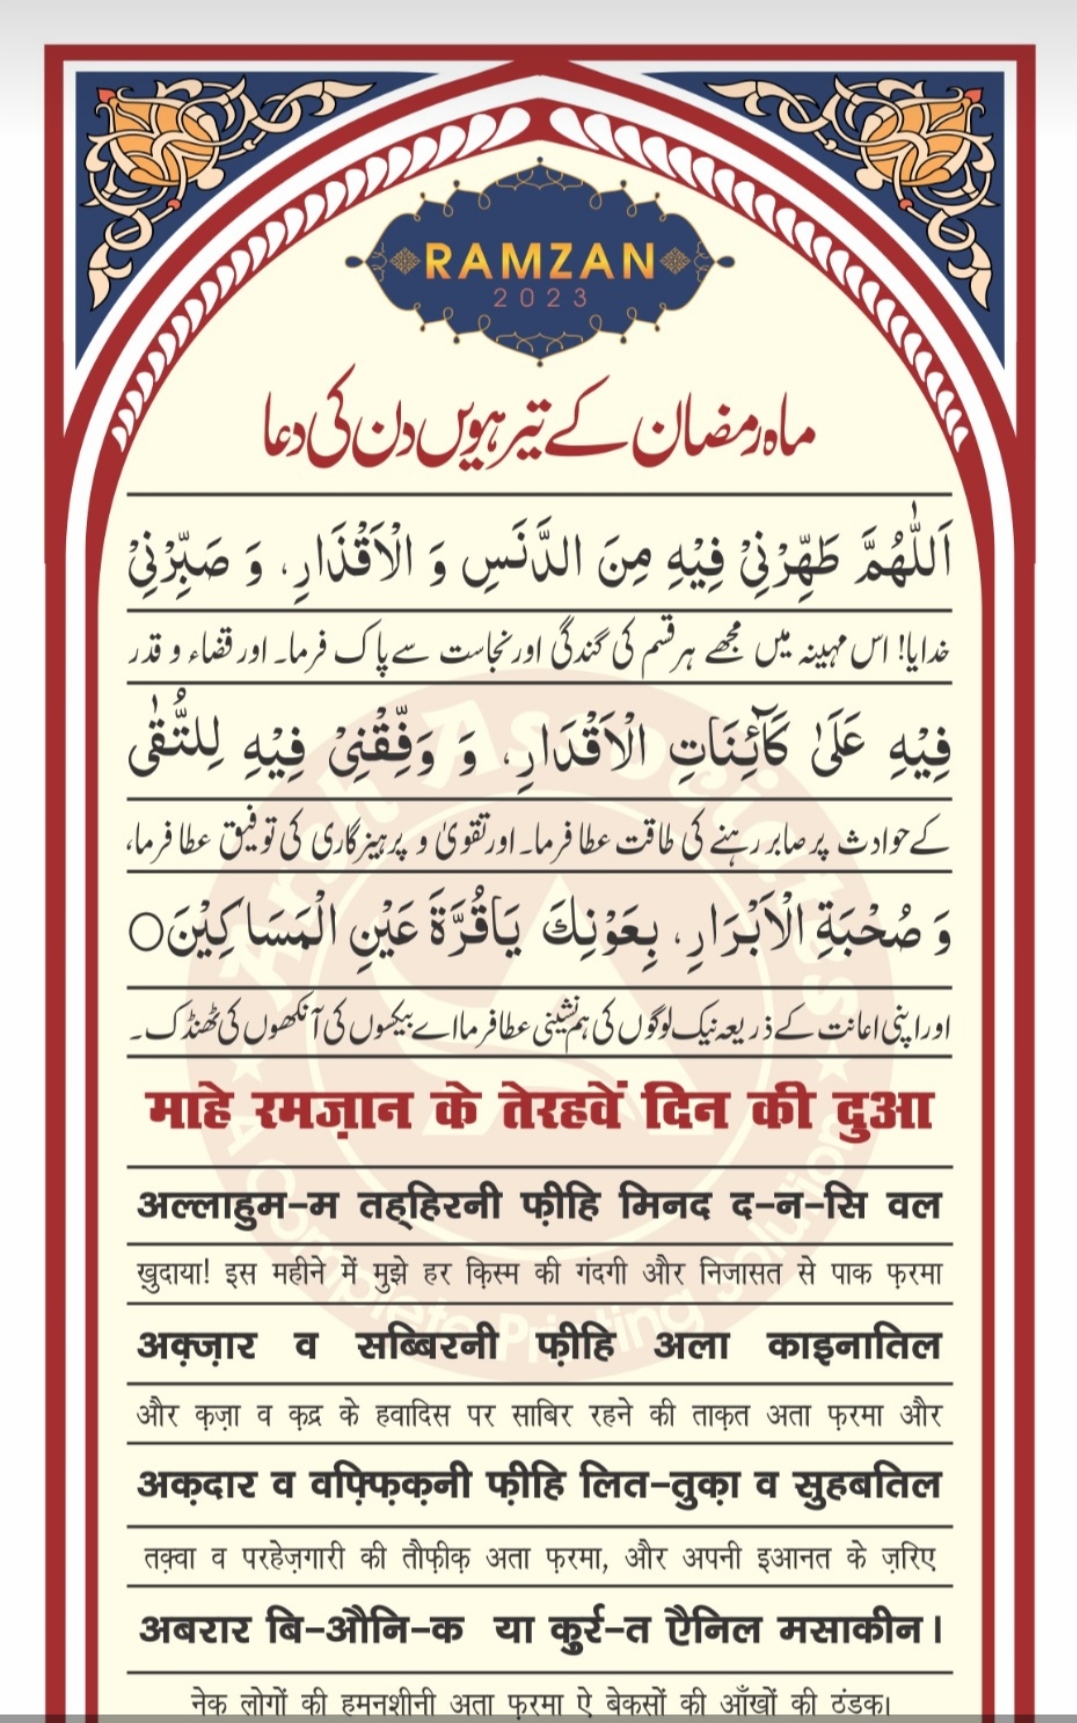 RAMZAN
2023
ماہ رمضان کے تیرہویں دن کی دعا
اَللّٰهُمَّ طَهِّرْنِيْ فِيْهِ مِنَ الدَّنَسِ وَ الْاَقْذَارِ، وَ صَبِّرْنِيْ
خدایا! اس مہینہ میں مجھے ہر قسم کی گندگی اور نجاست سے پاک فرما۔ اور قضاء و قدر
فِيْهِ عَلٰى كَآئِنَاتِ الْاَقْدَارِ، وَ وَفِّقْنِيْ فِيْهِ لِلتُّقٰى
کے حوادث پر صابر رہنے کی طاقت عطا فرما۔ اور تقویٰ و پرہیزگاری کی توفیق عطا فرما،
وَ صُحْبَةِ الْاَبْرَارِ، بِعَوْنِكَ يَاقُرَّةَ عَيْنِ الْمَسَاكِيْنَ○
اور اپنی اعانت کے ذریعہ نیک لوگوں کی ہم نشینی عطا فرما اے بیکسوں کی آنکھوں کی ٹھنڈک۔
माहे रमज़ान के तेरहवें दिन की दुआ
अल्लाहुम-म तह्हिरनी फ़ीहि मिनद द-न-सि वल
ख़ुदाया! इस महीने में मुझे हर क़िस्म की गंदगी और निजासत से पाक फ़रमा
अक़्ज़ार व सब्बिरनी फ़ीहि अला काइनातिल
और क़ज़ा व क़द्र के हवादिस पर साबिर रहने की ताक़त अता फ़रमा और
अक़दार व वफ़्फ़िक़नी फ़ीहि लित-तुक़ा व सुहबतिल
तक़्वा व परहेज़गारी की तौफ़ीक़ अता फ़रमा, और अपनी इआनत के ज़रिए
अबरार बि-औनि-क या क़ुर्र-त ऐनिल मसाकीन।
नेक लोगों की हमनशीनी अता फ़रमा ऐ बेकसों की आँखों की ठंडक।
A Complete Printing Solution